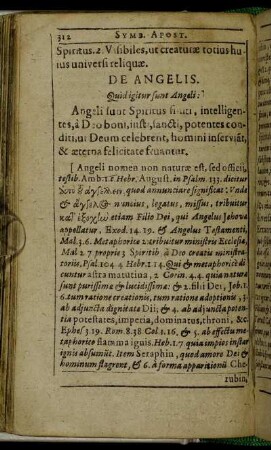 312 SYMB. APOST.
Spiritus. 2. Visibiles, ut creaturæ totius hu-
ius universi reliquæ.
DE ANGELIS.
Quid igitur sunt Angeli?
Angeli sunt Spiritus finiti, intelligen-
tes, à Deo boni, iusti, sancti, potentes con-
diti, ut Deum celebrent, homini inserviāt,
& æterna felicitate fruantur.
[ Angeli nomen non naturæ est, sed officii,
testib. Amb. 1. Hebr. August. in Psalm. 133. dicitur
quod annunciare significat: Unde
& nuncius, legatus, missus, tribuitur
etiam Filio Dei, qui Angelus Jehova
appellatur. Exod. 14. 19. & Angelus Testamenti,
Mal. 3. 6. Metaphoricè 2. tribuitur ministris Ecclesiæ,
Mal 2. 7 propriè 3 Spiritib. à Deo creatis ministra-
toriis, Psal 104. 4 Hebr. 1 14. Qui & metaphoricè di-
cuntur astra matutina, 2 Corin. 4. 4. quia naturā
sunt purissimæ & lucidissimæ: & 2. filii Dei, Job. 1.
6. tum ratione creationis, tum ratione adoptionis, 3.
ab adjuncta dignitate Dii; & 4. ab adjuncta poten-
tia potestates, imperia, dominatus, throni, &c.
Ephes 3. 19. Rom. 8. 38 Col. 1. 16. & 5. ab effectu me-
taphoricè flamma ignis. Heb. 1. 7 quia impios instar
ignis absumūt. Item Seraphin, quod amore Dei &
hominum flagrent, & 6. à forma apparitionū Che-
rubin,